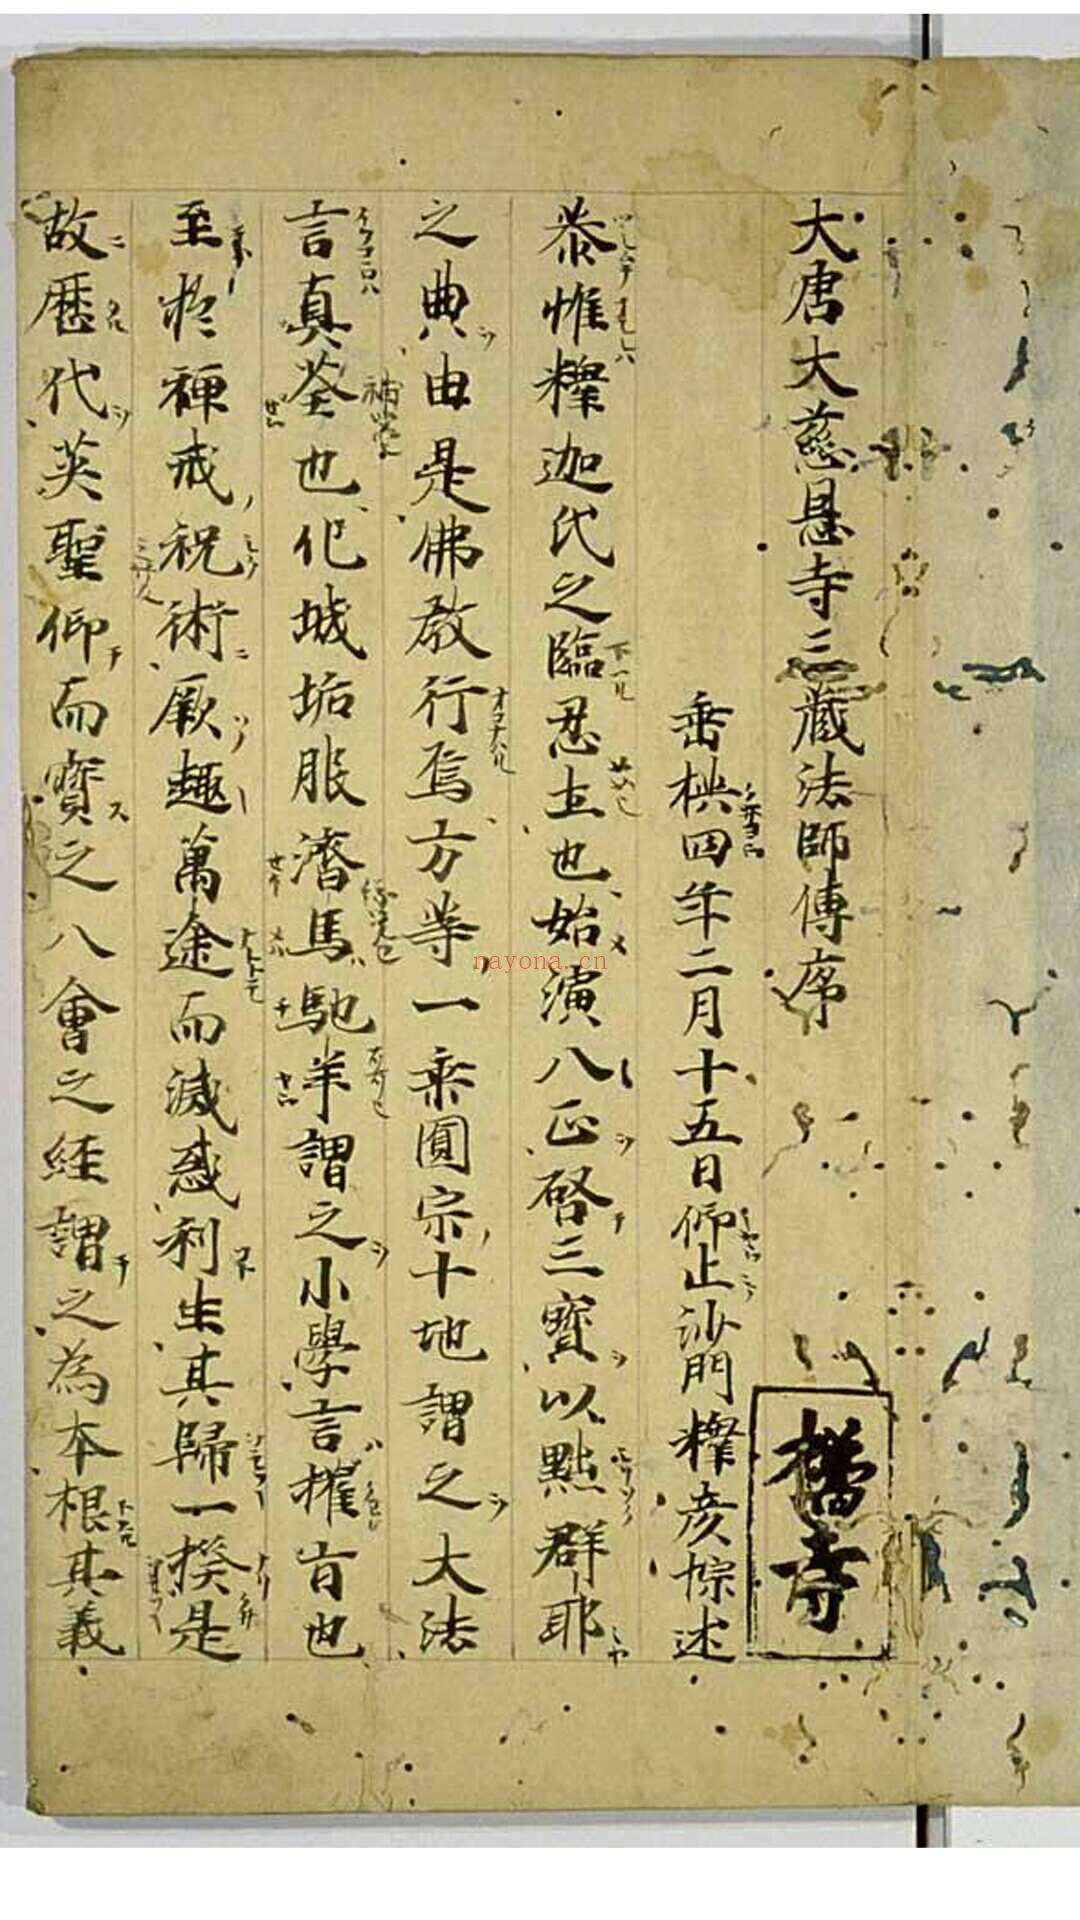 大唐大慈恩寺三藏法師傳序
垂拱四年二月十五日仰止沙門釋彥悰述
恭惟釋迦氏之臨忍土也始演八正啓三寳以點群耶
之典由是佛教行焉方等一乘圓宗十地謂之大法
言真荃也化城垢服濟馬馳羊謂之小學言權旨也
至於禪戒祝術厥趣萬途而滅惑利生其歸一揆是
故歷代英聖仰而寳之八會之經謂之為本根其義
橘寺
nayona.cn